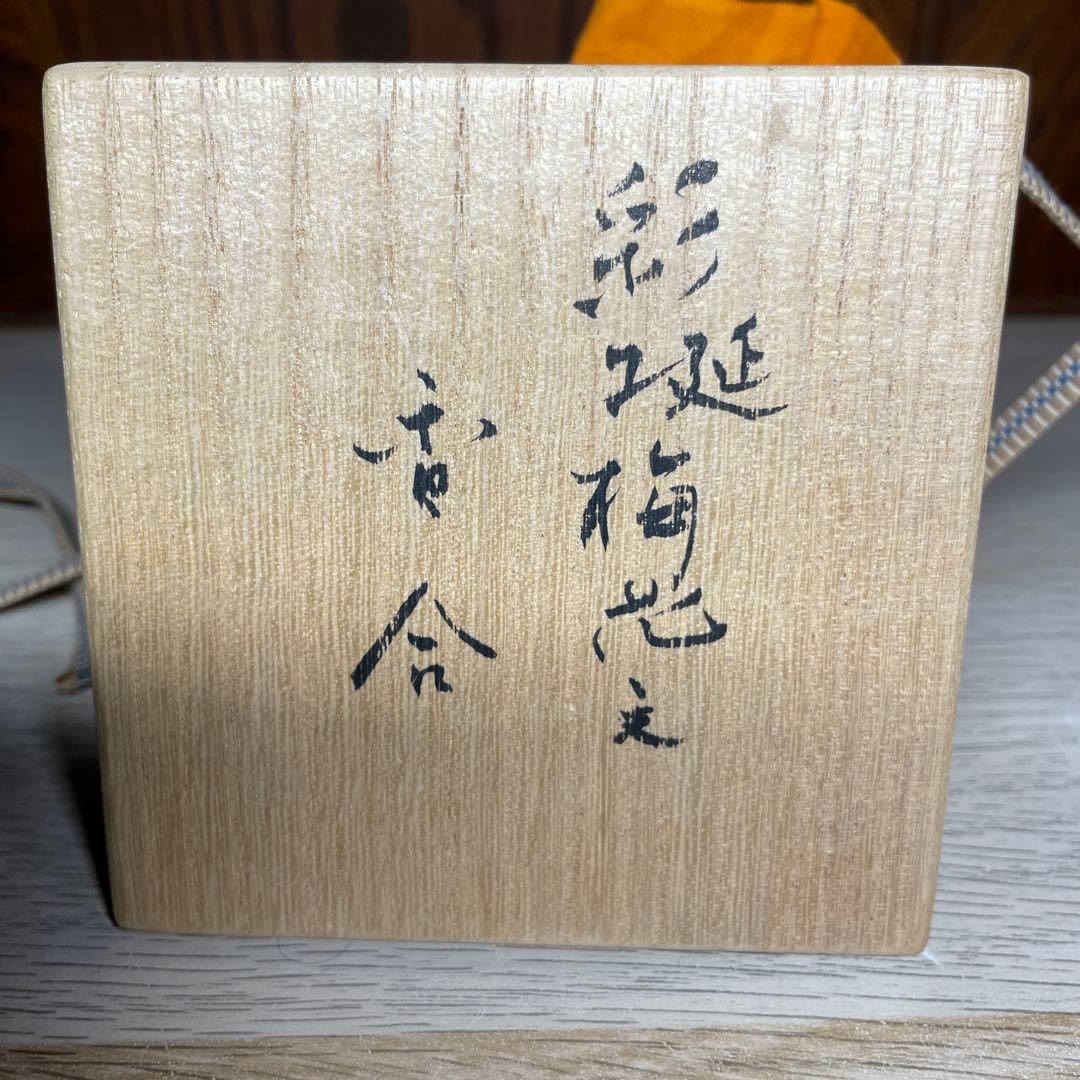 彩埏梅花文
香合